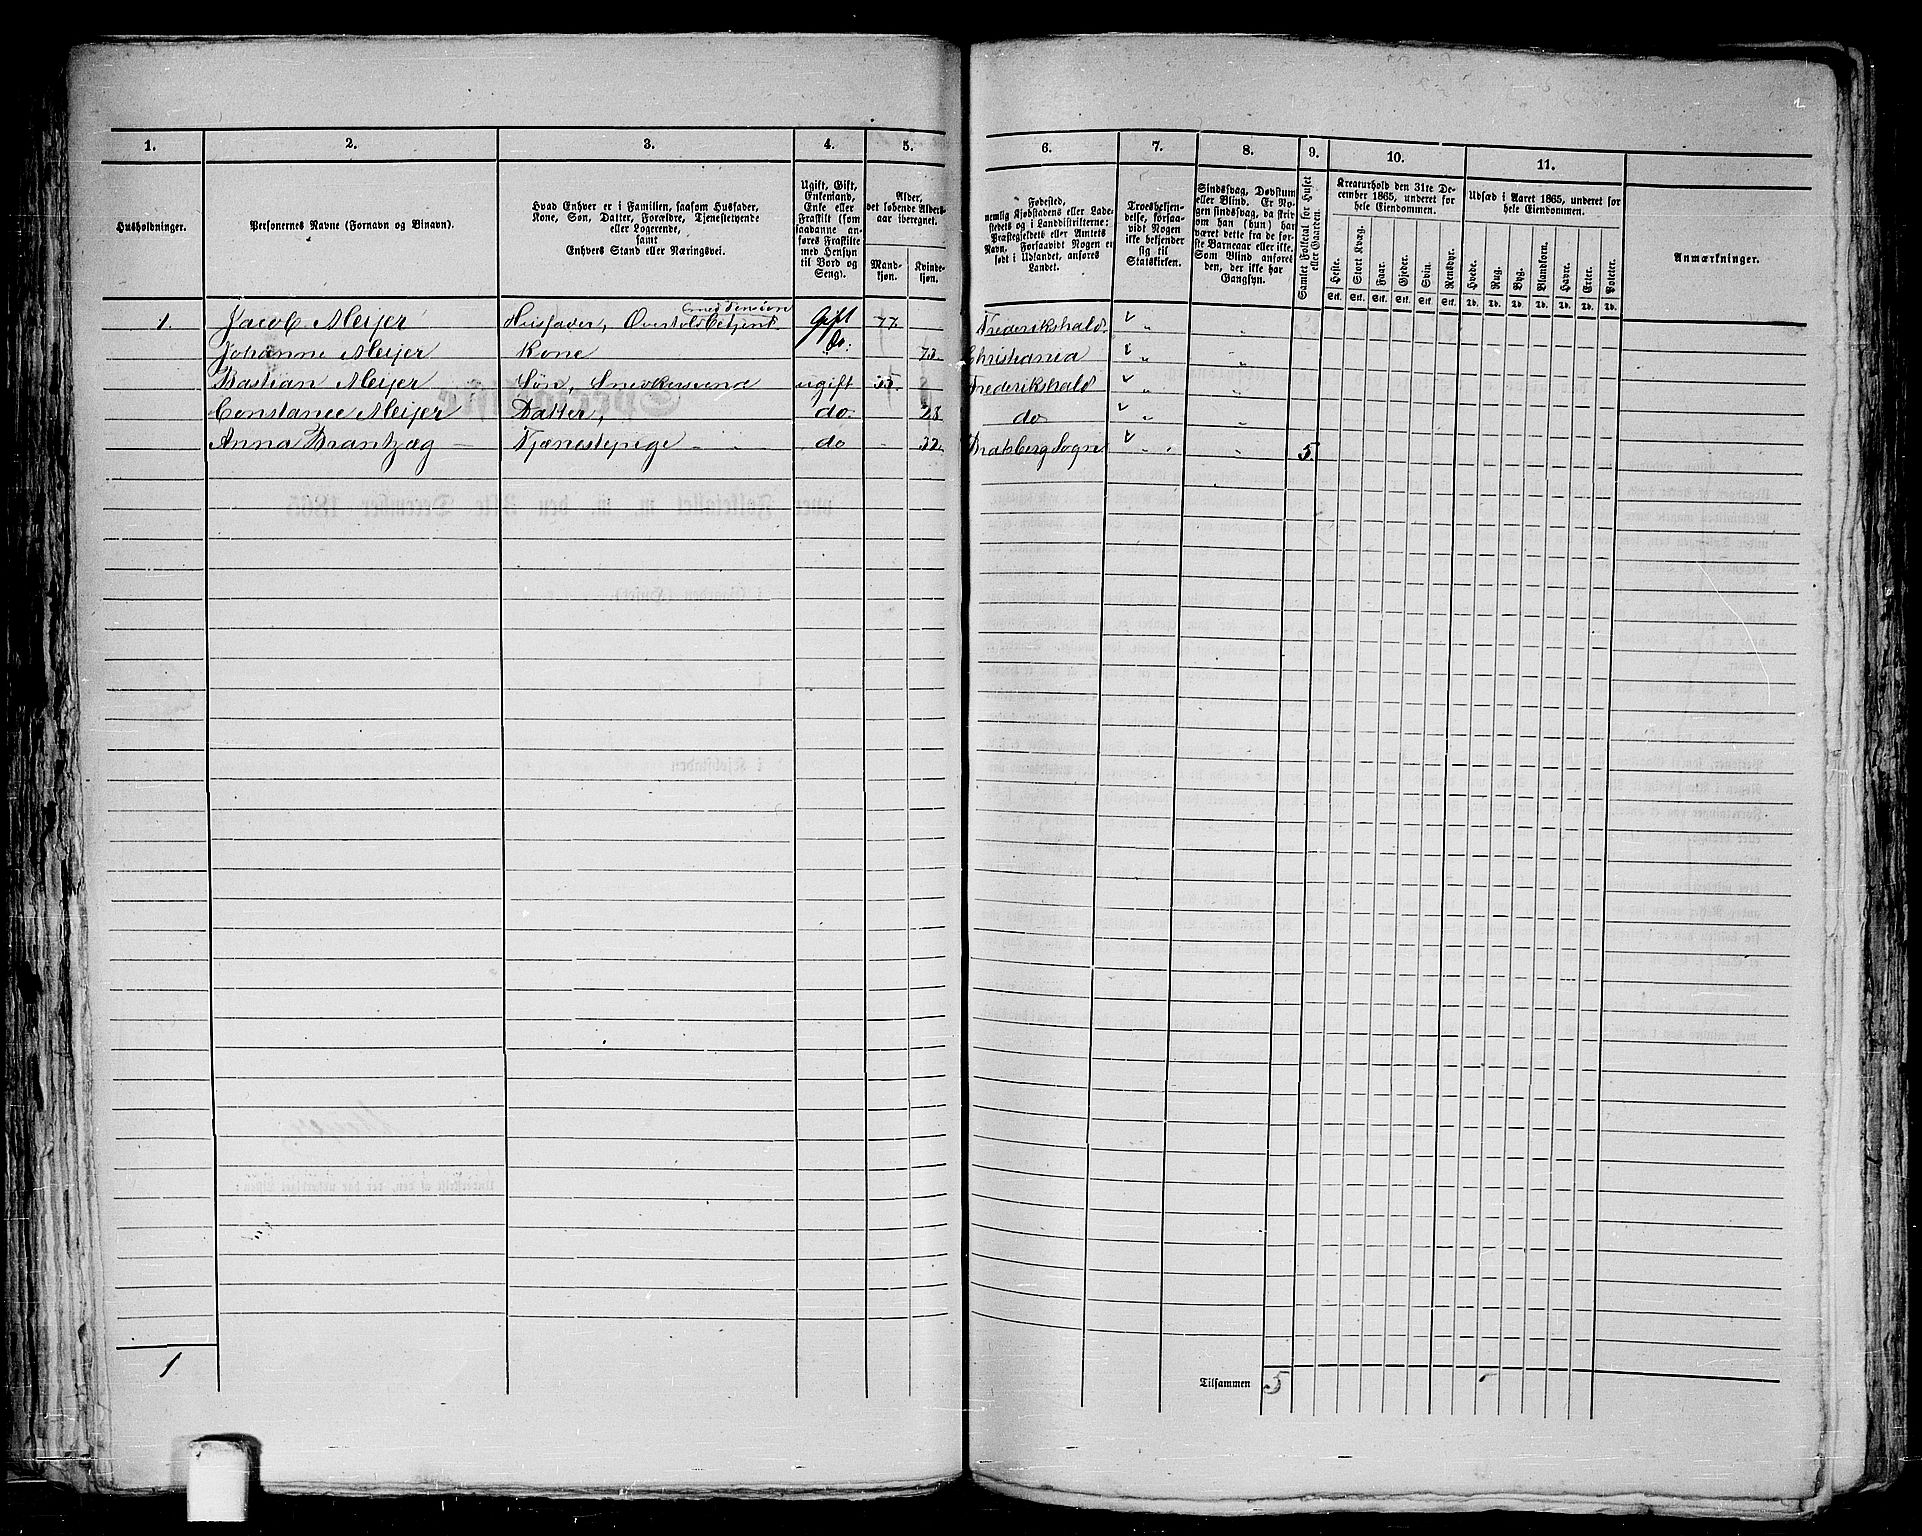 1. 2. 3. 4. 5. 6. 7. 8. 9. 10. 11.
Husholdninger.
Personernes Navne (Fornavn og Binavn).
Hvad Enhver er i Familien, saasom Husfader,
Kone, Søn, Datter, Forældre, Tjenestetyende
eller Logerende,
samt
Enhvers Stand eller Næringsvei.
Ugift, Gift,
Enkemand,
Enke eller
Fraskilt (som
saadanne an-
føres Fraskilte
med Hensyn
til Bord og
Seng).
Alder,
det løbende Alders-
aar iberegnet.
Mand-
kjøn.
Kvinde-
kjøn.
Fødested,
nemlig Kjøbstadens eller Lade-
stedets og i Landdistrikterne:
Præstegjeldets eller Amtets
Navn. Forsaavidt Nogen er
født i Udlandet, anføres
Landet.
Troesbekjen-
delse, forsaa-
vidt Nogen
ikke bekjender
sig til
Statskirken.
Sindssvag, Døvstum
eller Blind. Er No-
gen sindssvag, da skriv
om han (hun) har
været dette fra de før-
ste Barneaar eller ikke.
Som Blind anføres
den, der ikke har
Gangsyn.
Samlet Folketal for Huset
eller Gaarden.
Kreaturhold den 31te De-
cember 1865, underet for
hele Eiendommen.
Heste. Stort Kvæg. Faar. Gjeder. Svin. Rensdyr.
Stk. Stk. Stk. Stk. Stk. Stk.
Udsæd i Aaret 1865, underet for
hele Eiendommen.
Hvede. Rug. Byg. Blandkorn. Havre. Erter. Poteter.
Td. Td. Td. Td. Td. Td. Td.
Anmærkninger.
med Pension
1. Jacob Meijer Husfader, Overtoldbetjent Gift 77. Frederikshald
Johanne Meijer Kone do: 73. Christiania
Bastian Meijer Søn, Snedkersvend ugift 35. Frederikshald
Constance Meijer Datter, do 28 do
Anna Brantzæg Tjenestepige do 32. Bratsberg Sogn 5.
1
Tilsammen 5